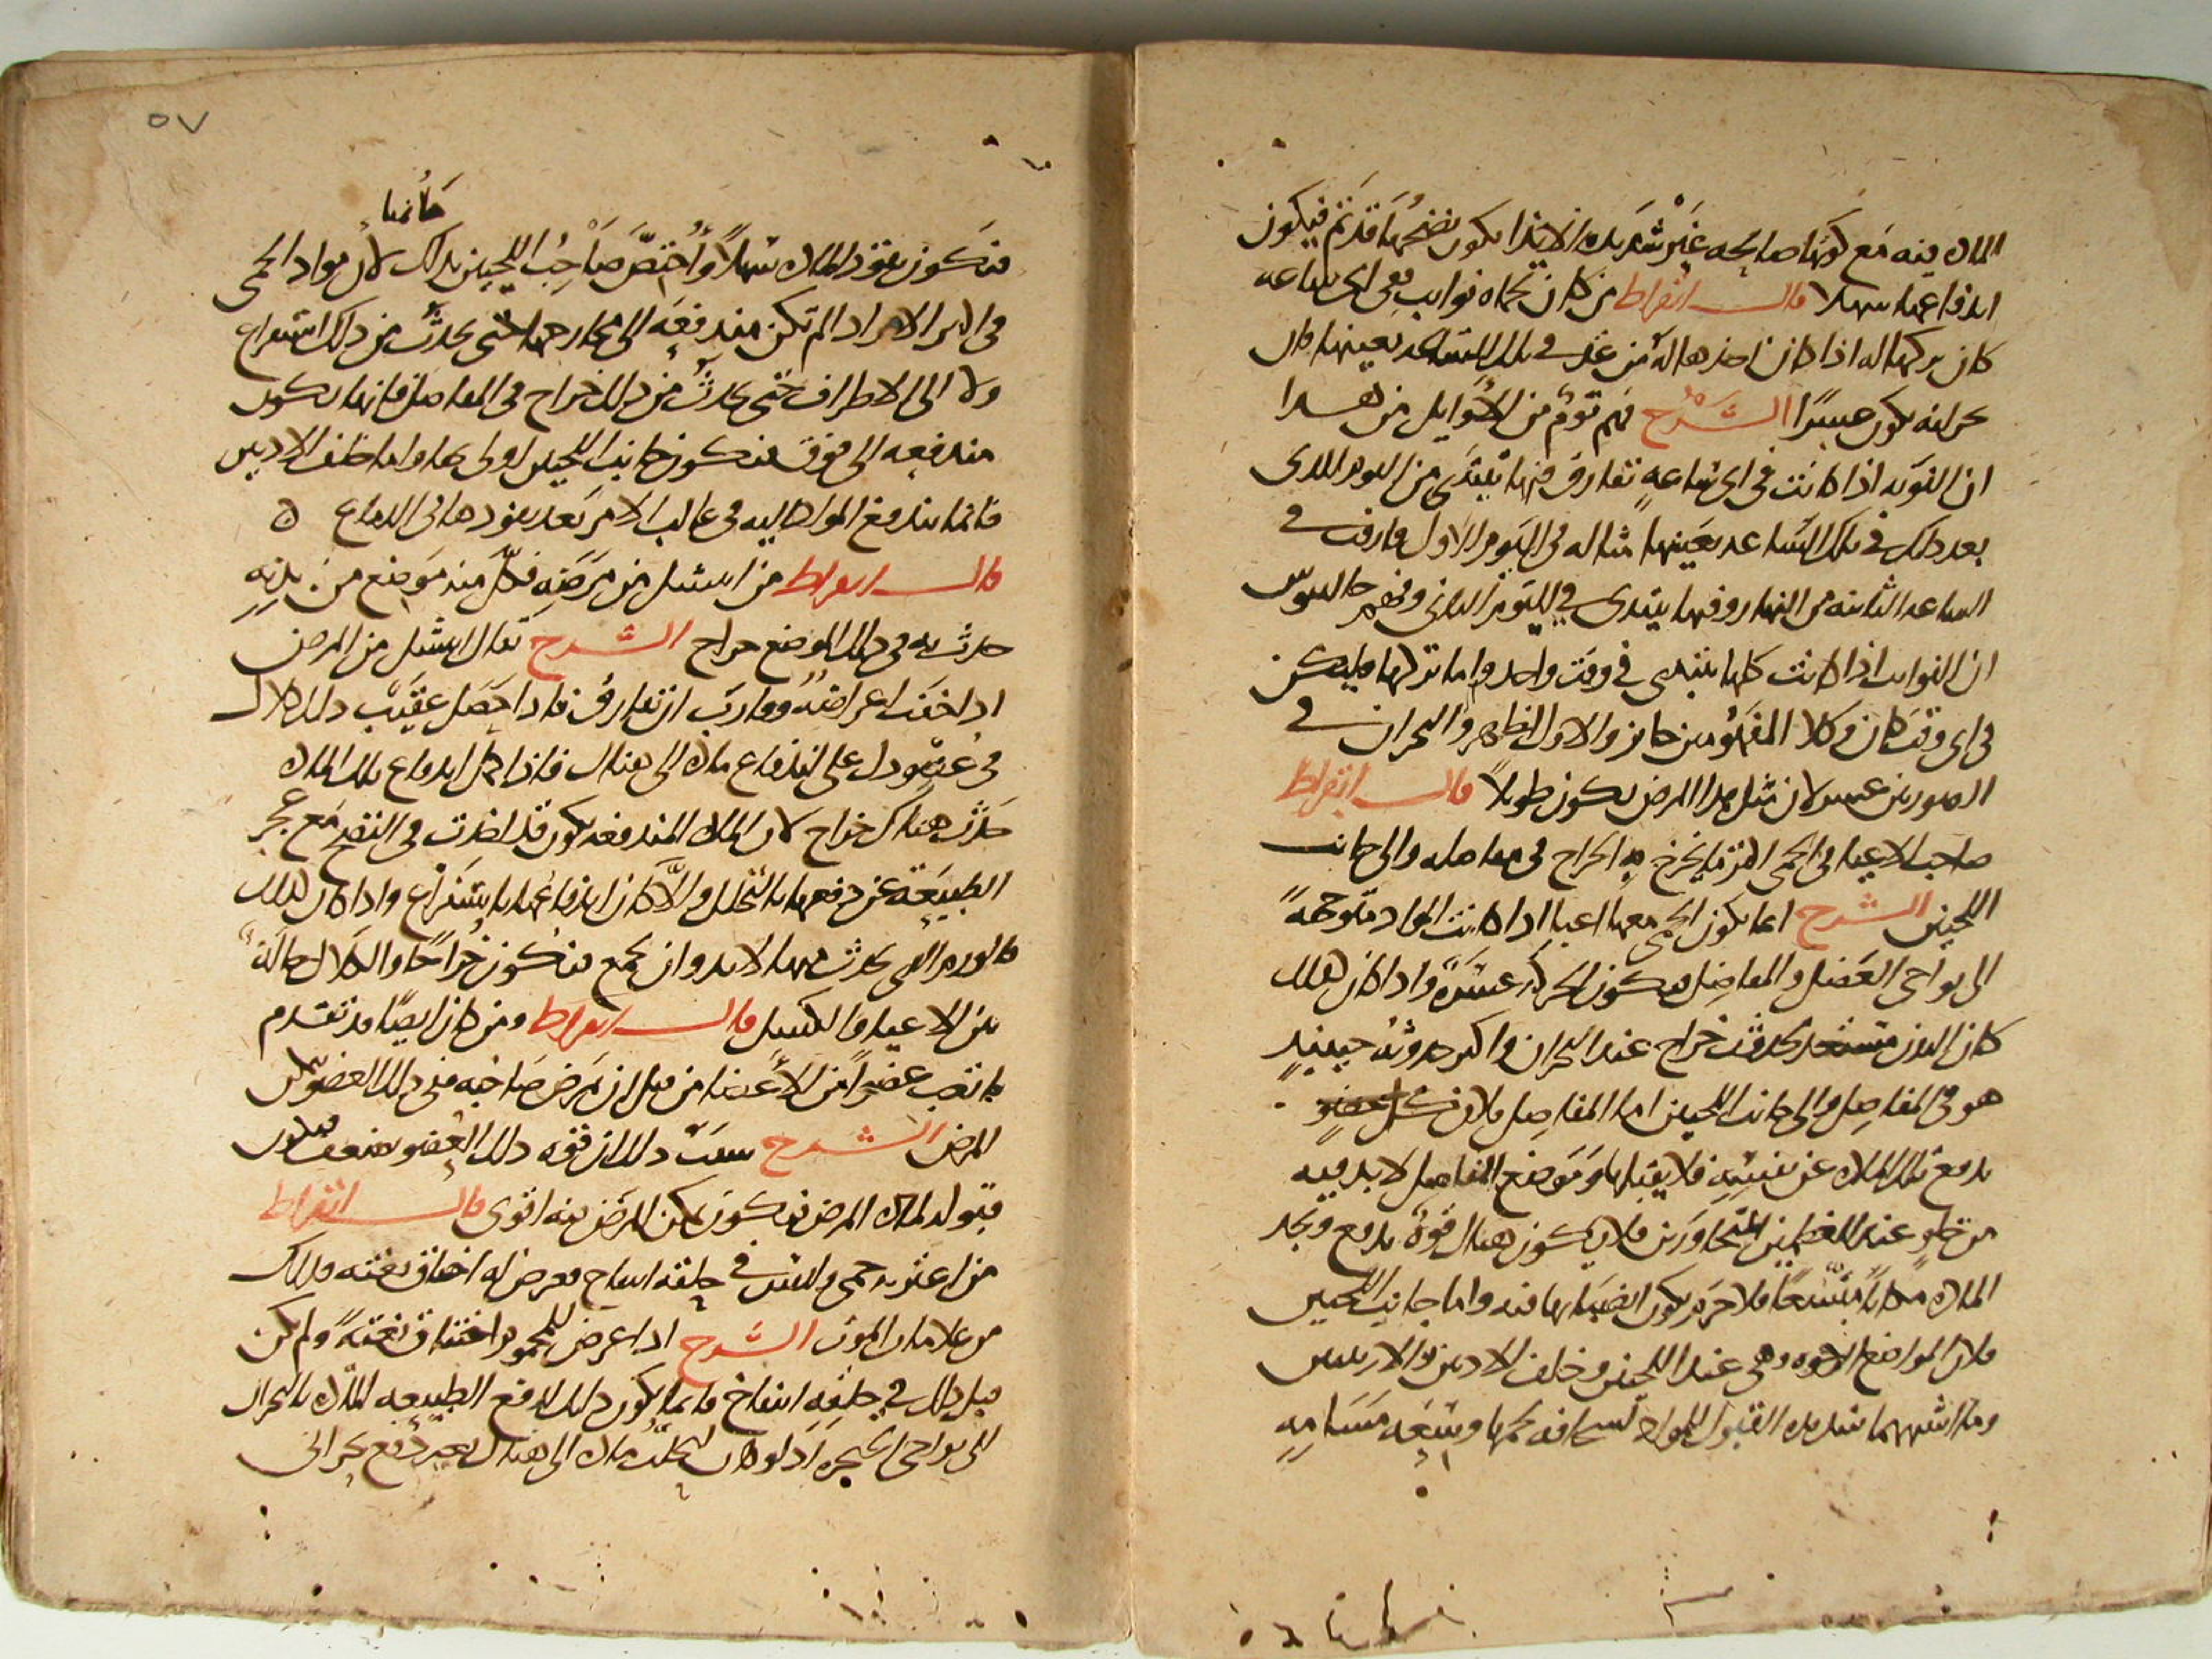 المادة فيه مع كونها صالحة غير شديدة الايذا يكون نضجها قد تم فيكون
اندفاعها سهلا قال ابقراط من كان بحماه نوايب ففي اي ساعة
كان تركها له اذا كان اخذها له من غد في تلك الساعة بعينها كان
بحرانه يكون عسيرا الشرح فهم قوم من الاوايل من هذا
ان النوبة اذا كانت في اي ساعة تفارق فيها تبتدي من اليوم الذي
بعد ذلك في تلك الساعة بعينها مثاله في اليوم الاول فارقت في
الساعة الثانية من النهار وفيها يبتدي في اليوم الثاني وفهم جالينوس
ان النوايب اذا كانت كلها تبتدي في وقت واحد واما تركها فليكن
في اي وقت كان وكلا المفهومين جايز والاول اظهر والبحران في
الصورتين عسر لان مثل هذا المرض يكون طويلا قال ابقراط
صاحب الاعيا في الحمى اكثر ما يخرج به الخراج في مفاصله والى جانب
اللحيين الشرح انما يكون الحمى معها اعيا اذا كانت المواد متوجهة
الى نواحي العضل والمفاصل فيكون الحركة عسرة واذا كان كذلك
كان البدن مستعد لحدوث خراج عند البحران واكثر حدوثه حينيذ
هو في المفاصل والى جانب اللحيين اما المفاصل فلان كل عضو
يدفع تلك المادة عن نفسه فلا يقبلها وموضع المفاصل لا بد فيه
من خلو عند العظمين المتجاورين فلا يكون هناك قوة تدفع وتجد
المادة مكانا متسعا فلا جرم يكون انصبابها فيه واما جانب اللحيين
فلان المواضع الرخوة وهي عند اللحيين وخلف الاذنين والاربيتين
وما اشبههما شديدة القبول للمواد لسخافة لحمها وسعة مسامه
٥٧
جانبا
فتكون نفوذ المادة سهلا واختص صاحب اللحيين بذلك لان مواد الحمى
في اكثر الامر اذا لم تكن مندفعة الى مخارجها حتى يحدث من ذلك استفراغ
ولا الى الاطراف حتى يحدث من ذلك خراج في المفاصل فانها تكون
مندفعة الى فوق فيكون جانب اللحيين اولى بها واما خلف الاذنين
فانما يندفع المواد اليه في غالب الامر بعد نفوذها الى الدماغ ه
قال ابقراط من انتشل من مرضه فكل منه موضع من بدنه
حدث به في ذلك الموضع خراج الشرح يقال انتشل من المرض
اذا خفت اعراضه وقاربت ان تفارق فاذا حصل عقيب ذلك كلال
في عضو دل على اندفاع مادة الى هناك فاذا كمل اندفاع تلك المادة
حدث هناك خراج لان المادة المندفعة يكون قد اخذت في النضج مع عجز
الطبيعة عن دفعها بالتحلل والا كان اندفاعها باستفراغ واذا كان كذلك
فالورم الذي يحدث منها لا بد وان يجمع فيكون خراجا والكلال حالة
بين الاعيا والكسل قال ابقراط ومن كان ايضا قد تقدم
فاتعب عضوا من الاعضا من قبل ان يمرض صاحبه ففي ذلك العضو يتمكن
المرض الشرح سبب ذلك ان قوة ذلك العضو تضعف فيكون
قبوله لمادة المرض فيكون تمكن المرض منه اقوى قال ابقراط
من اعترته حمى وليس في حلقه انتفاخ فعرض له اختناق بغتة فذلك
من علامات الموت الشرح اذا عرض للمحموم اختناق بغتة ولم يكن
قبل ذلك في حلقه انتفاخ فانما يكون ذلك لدفع الطبيعة المادة بالبحران
الى نواحي الحنجرة اذ لو كان لتحلب مادة الى هناك بغير دفع بحراني